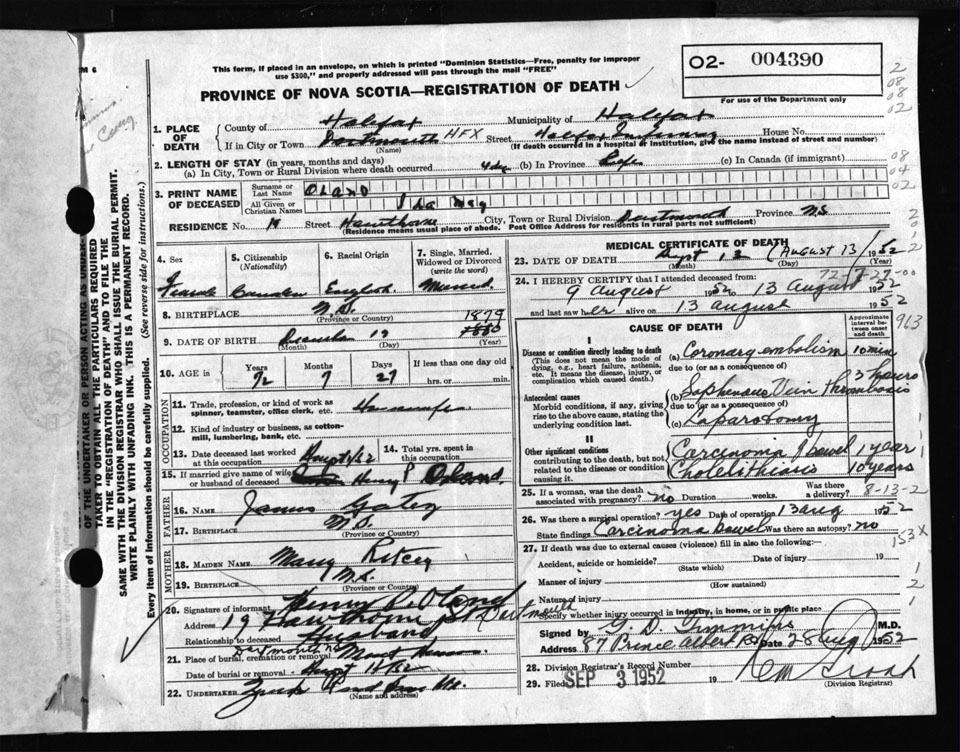 This form, if placed in an envelope, on which is printed "Dominion Statistics—Free, penalty for improper
use $300," and properly addressed will pass through the mail "FREE"
O2- 004390
For use of the Department only
PROVINCE OF NOVA SCOTIA—REGISTRATION OF DEATH
1. PLACE OF DEATH
County of Halifax Municipality of Halifax
If in City or Town Dartmouth HFX Street Halifax Infirmary House No.
(Name) (If death occurred in a hospital or institution, give the name instead of street and number)
2. LENGTH OF STAY (in years, months and days)
(a) In City, Town or Rural Division where death occurred 4 day (b) In Province Life (c) In Canada (if immigrant)
3. PRINT NAME OF DECEASED
Surname or Last Name OLAND
All Given or Christian Names Ida May
RESIDENCE No. 19 Street Hawthorne City, Town or Rural Division Dartmouth Province N.S
(Residence means usual place of abode. Post Office Address for residents in rural parts not sufficient)
4. Sex Female
5. Citizenship (Nationality) Canadian
6. Racial Origin English
7. Single, Married, Widowed or Divorced (write the word) Married
8. BIRTHPLACE N.S.
(Province or Country)
9. DATE OF BIRTH December 17 1879 1880
(Month) (Day) (Year)
10. AGE in Years Months Days If less than one day old
72 7 27 hrs. or min.
OCCUPATION
11. Trade, profession, or kind of work as spinner, teamster, office clerk, etc. Housewife
12. Kind of industry or business, as cotton-mill, lumbering, bank, etc.
13. Date deceased last worked at this occupation
14. Total yrs. spent in this occupation
15. If married give name of wife or husband of deceased Henry P Oland
FATHER
16. NAME James
17. BIRTHPLACE N.S.
(Province or Country)
MOTHER
18. MAIDEN NAME Mary
19. BIRTHPLACE N.S.
(Province or Country)
20. Signature of informant Henry P. Oland
Address 19 Hawthorne St Dartmouth
Relationship to deceased Husband
21. Place of burial, cremation or removal Dartmouth NS Mount
Date of burial or removal
22. UNDERTAKER
(Name and address)
MEDICAL CERTIFICATE OF DEATH
23. DATE OF DEATH (August 13) 1952
(Month) (Day) (Year)
24. I HEREBY CERTIFY that I attended deceased from: 72-7-27-00
9 August 1952 to 13 August 1952
and last saw her alive on 13 August 1952
CAUSE OF DEATH
Approximate interval between onset and death
963
I
Disease or condition directly leading to death (a) Coronary embolism 10 min
(This does not mean the mode of dying, e.g., heart failure, asthenia, etc. It means the disease, injury, or complication which caused death.)
due to (or as a consequence of)
(b) Saphenous Vein thrombosis 3 hours
Antecedent causes
Morbid conditions, if any, giving rise to the above cause, stating the underlying condition last.
due to (or as a consequence of)
(c) Laparotomy
II
Other significant conditions
contributing to the death, but not related to the disease or condition causing it.
Carcinoma of bowel 1 year
Cholelithiasis 10 years
25. If a woman, was the death associated with pregnancy? no Duration weeks. Was there a delivery? 8-13-2
26. Was there a surgical operation? yes Date of operation 13 Aug 1952
State findings Carcinoma bowel Was there an autopsy? no
153X
27. If death was due to external causes (violence) fill in also the following:—
Accident, suicide or homicide? Date of injury 19
(State which)
Manner of injury
(How sustained)
Nature of injury
Specify whether injury occurred in industry, in home, or in public place
Signed by G. D. Timmins M.D.
Address 87 Prince Albert Rd Date 28 Aug 1952
28. Division Registrar's Record Number
29. Filed SEP 3 1952 19
(Division Registrar)
OF THE UNDERTAKER OR PERSON ACTING AS UNDER-
TAKER TO OBTAIN ALL THE PARTICULARS REQUIRED
IN THE "REGISTRATION OF DEATH" AND TO FILE THE
SAME WITH THE DIVISION REGISTRAR WHO SHALL ISSUE THE BURIAL PERMIT.
WRITE PLAINLY WITH UNFADING INK. THIS IS A PERMANENT RECORD.
Every item of information should be carefully supplied. (See reverse side for instructions.)